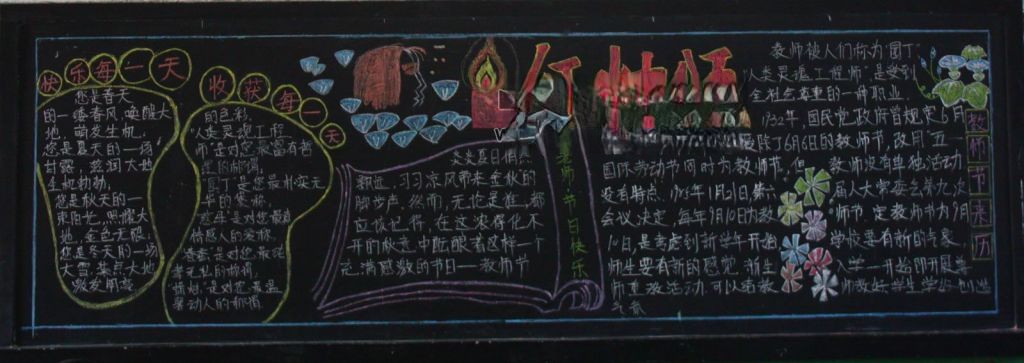 快乐每一天
您是春天
的一缕春风,唤醒大
地,萌发生机,
您是夏天的一场
甘露,滋润大地
生机勃勃,
您是秋天的一
束阳光,照耀大
地,金色无限,
您是冬天的一场
大雪,装点大地
收获每一天
的色彩,
"人类灵魂工程
师"是对您最富有哲
理的称谓,
"园丁"是您最朴实无
华的褒称,
情感人的爱称,
炎炎夏日悄然
习习凉风带来金秋的
脚步声,然而,无论是谁,都
应该记得,在这浓得化不
开的秋意中酝酿着这样一个
充满感激的节日——教师节
老师,节日快乐
教师被人们称为"园丁"
"人类灵魂工程师",是受到
全社会尊重的一种职业,
1932年,国民党政府曾规定6月
废除了6月6日的教师节,改用"五一
国际劳动节同时为教师节,但
教师没有单独活动
没有特点,1985年1月21日,第六
届人大常委会第九次
会议决定,每年9月10日为教
师节,定教师节为9月
10日,是考虑到新学年开始
学校要有新的气象
师生要有新的感觉,新生
入学一开始即开展尊
师重教活动,可以给教
师教好、学生学好创造
气氛
教师节来历